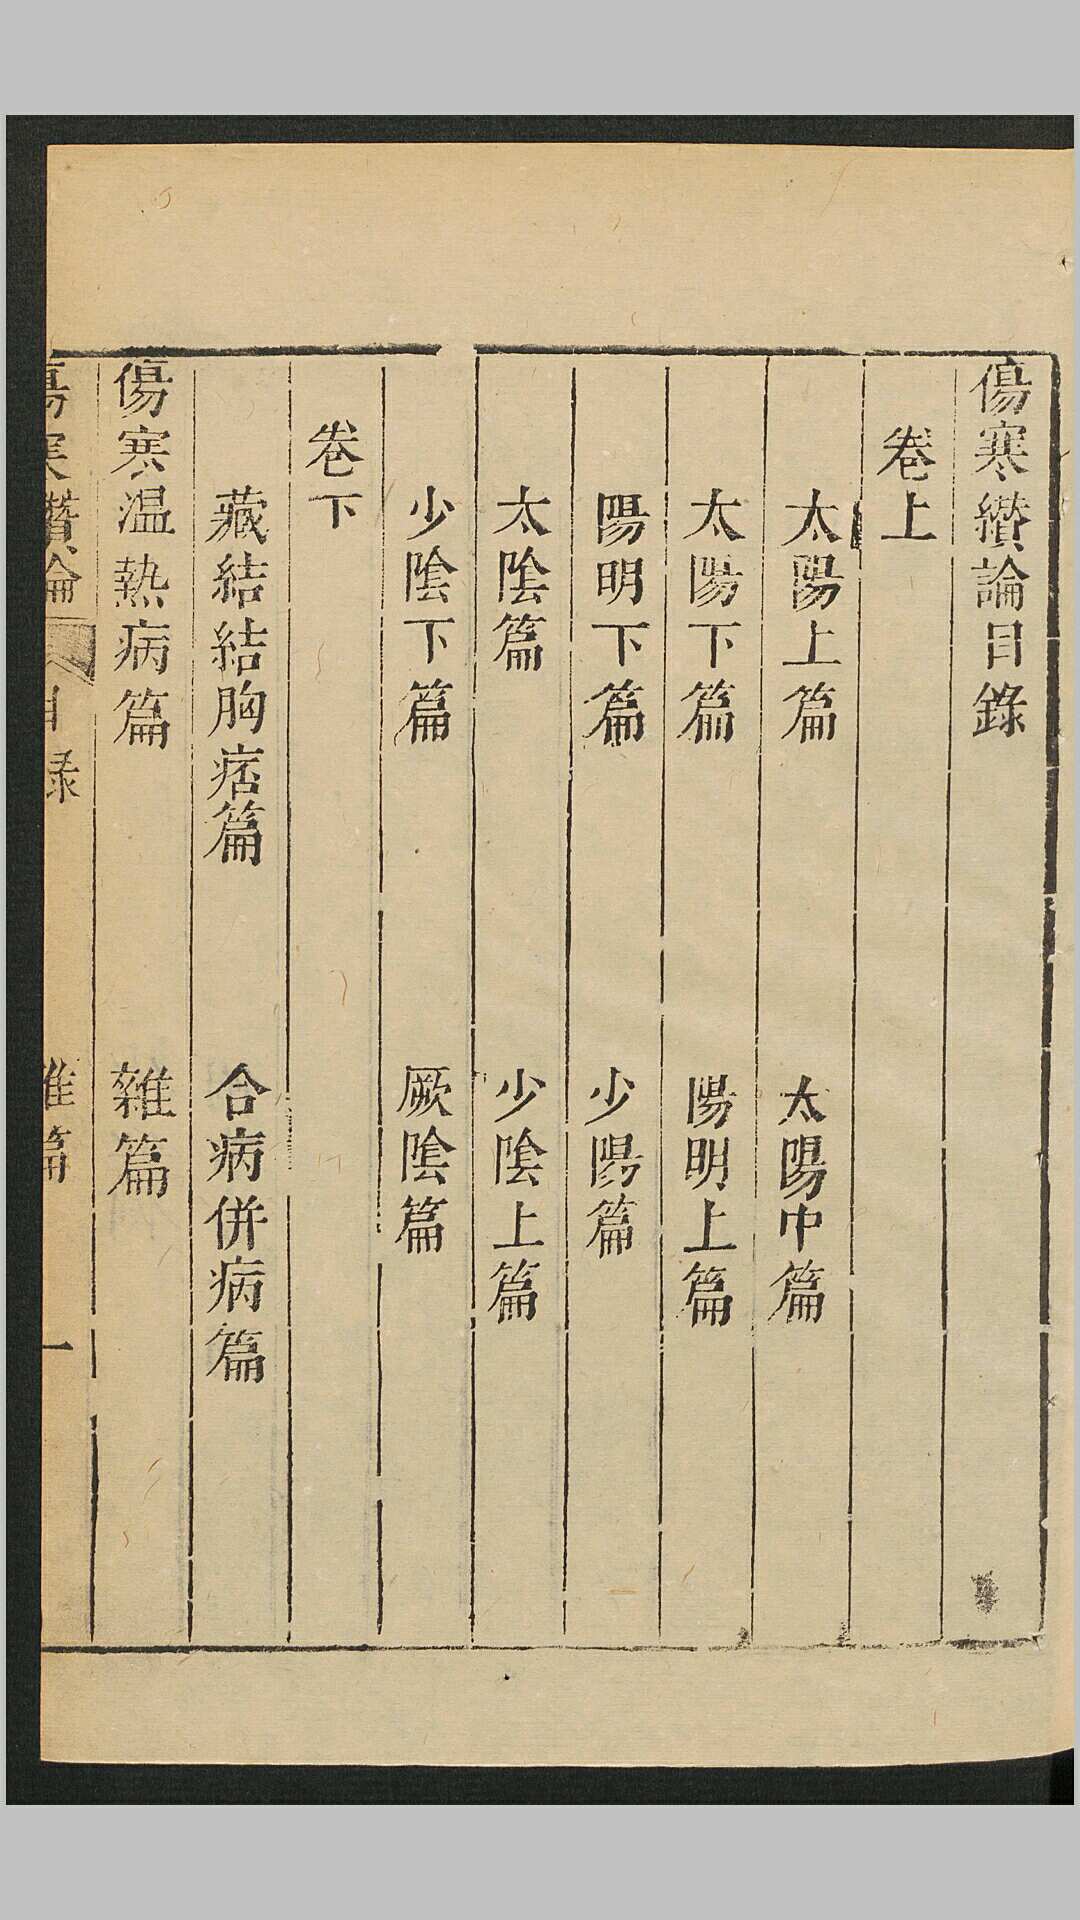 傷寒纘論目錄
卷上
太陽上篇　太陽中篇
太陽下篇　陽明上篇
陽明下篇　少陽篇
太陰篇　少陰上篇
少陰下篇　厥陰篇
卷下
藏結結胸痞篇　合病併病篇
傷寒温熱病篇　雜篇
傷寒纘論　目錄　雜篇　一